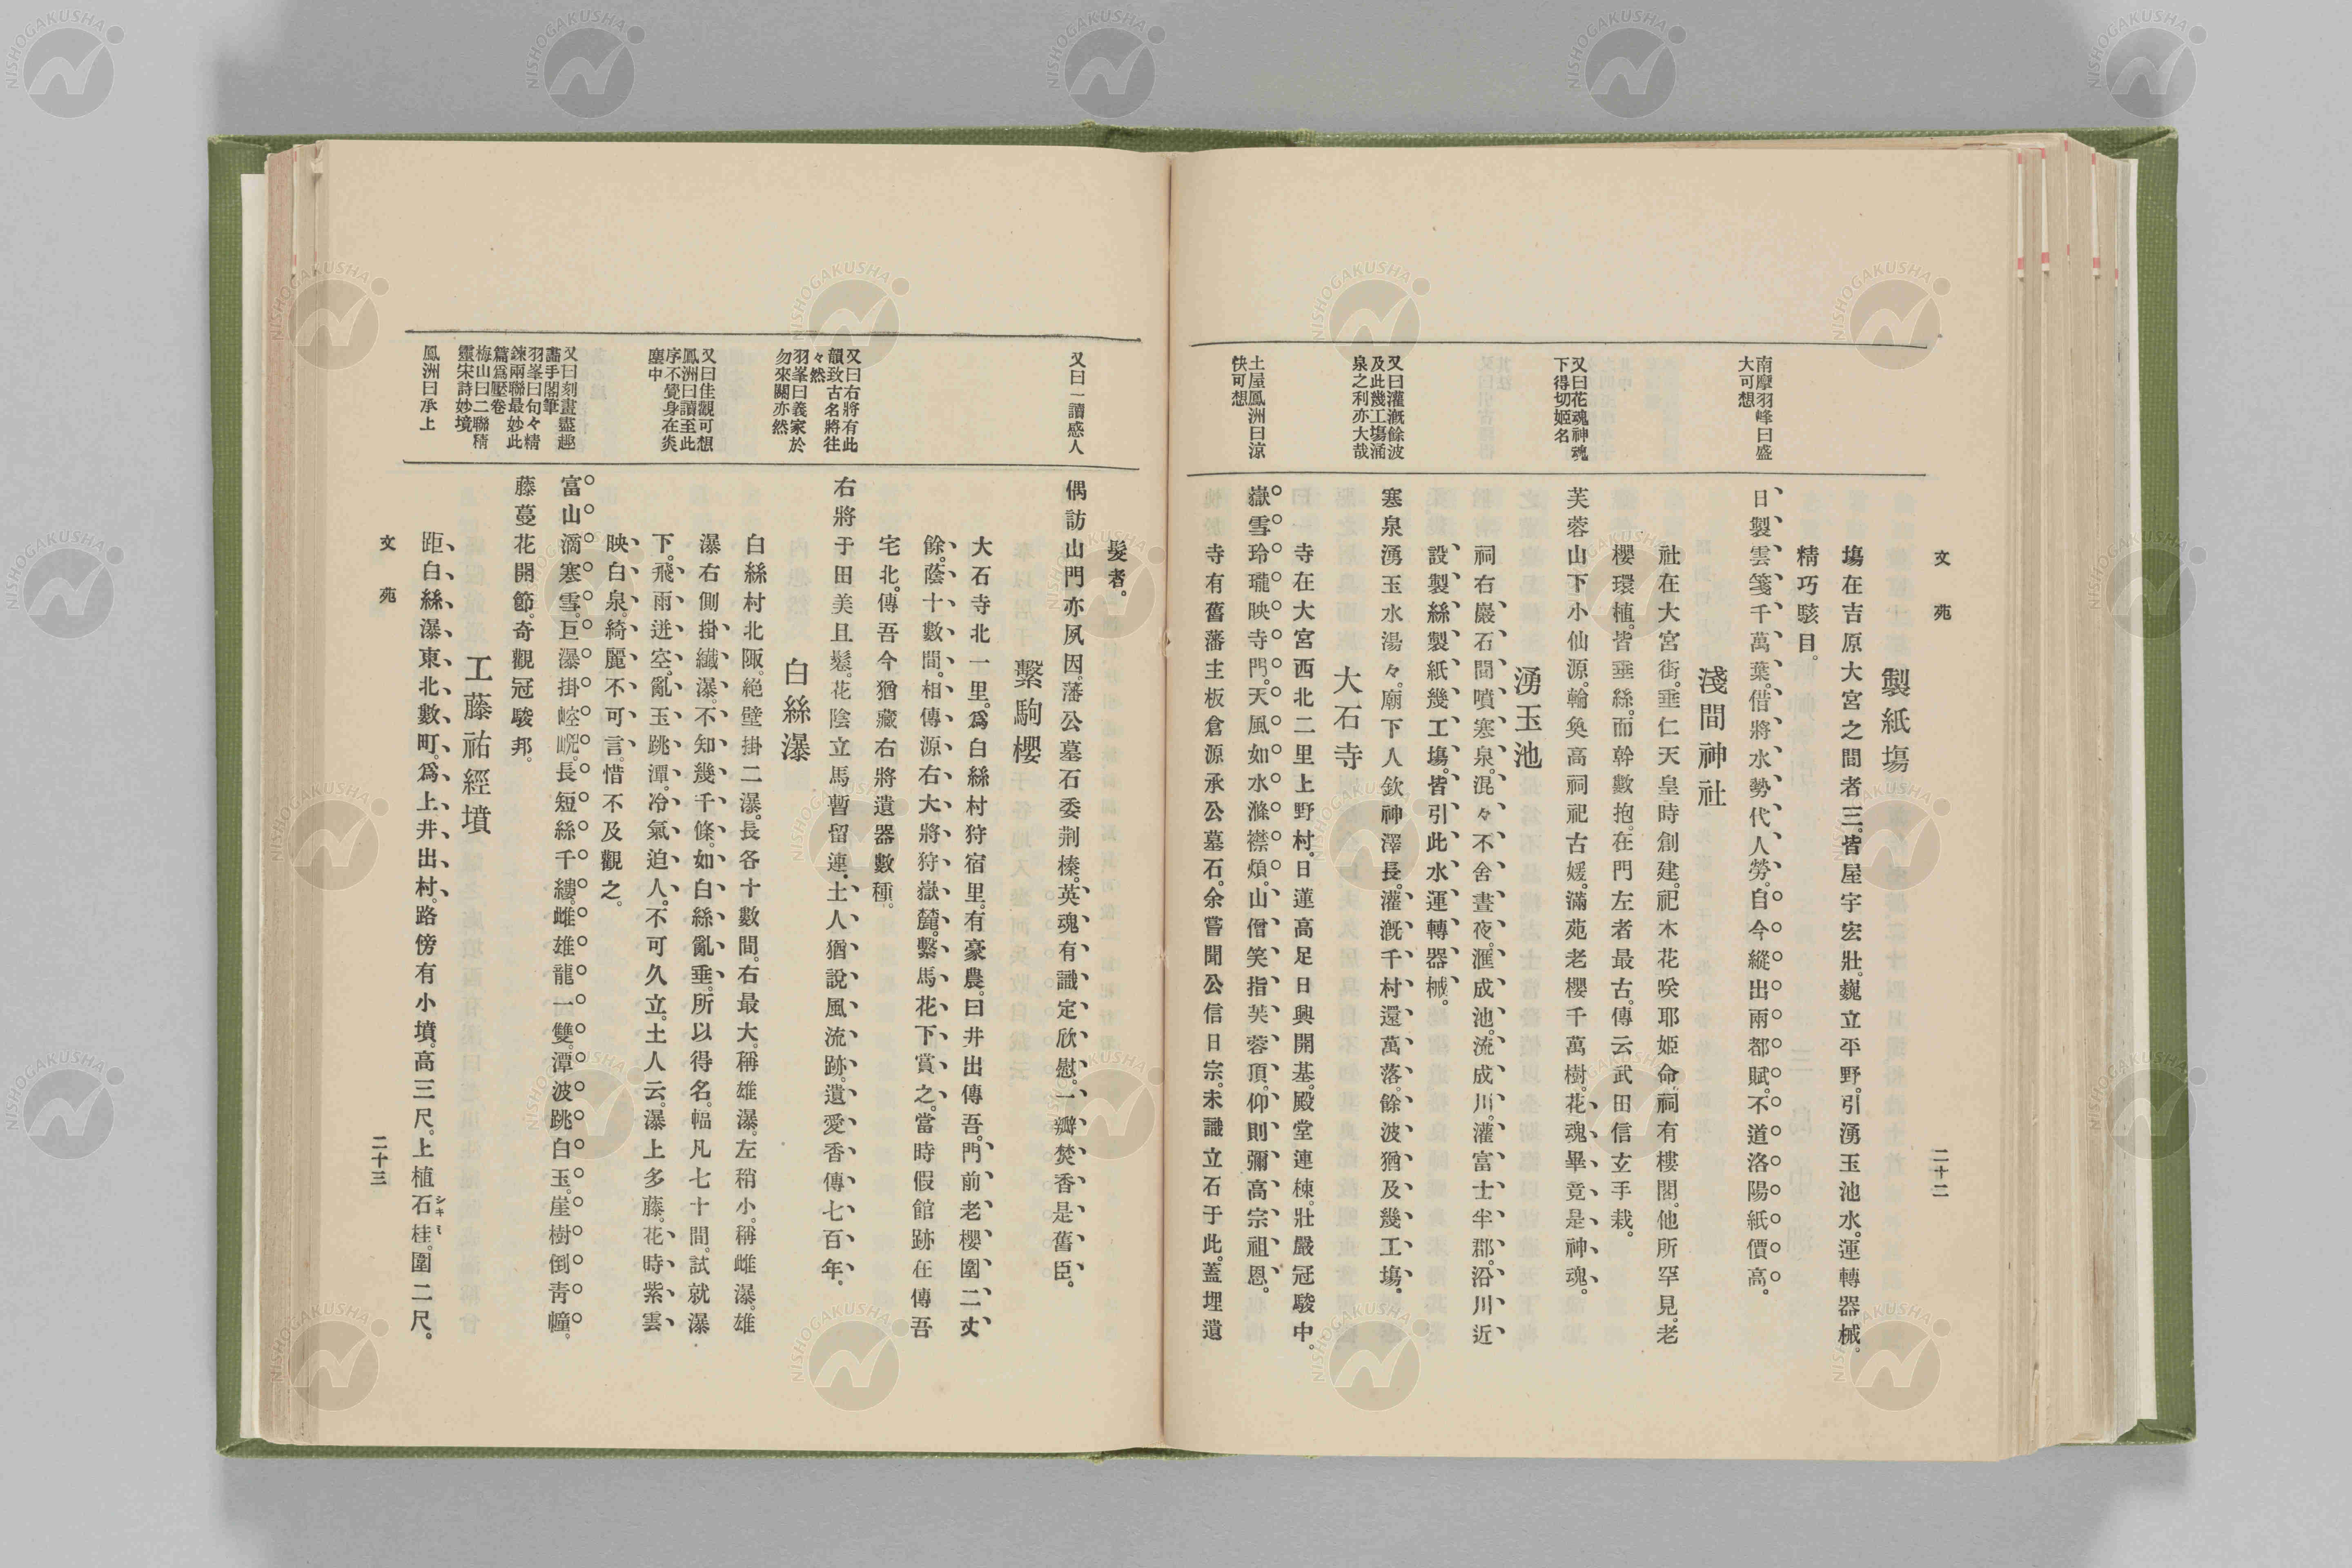 文苑
二十二
製紙塲
塲在吉原大宮之間者三。皆屋宇宏壯。巍立平野。引湧玉池水。運轉器械。
精巧駭目。
日製雲箋千萬葉。借將水勢代人勞。自今縱出兩都賦。不道洛陽紙價高。
南摩羽峰曰盛
大可想
淺間神社
社在大宮街。垂仁天皇時創建。祀木花咲耶姫命。祠有樓閣。他所罕見。老
櫻環植。皆垂絲。而幹數抱。在門左者最古。傳云武田信玄手栽。
芙蓉山下小仙源。輪奐高祠祀古媛。滿苑老櫻千萬樹。花魂畢竟是神魂。
又曰花魂神魂
下得切姬名
湧玉池
祠右巖石間噴寒泉。混々不舍晝夜。滙成池。流成川。灌富士半郡。沿川近
設製絲製紙幾工塲。皆引此水運轉器械。
寒泉湧玉水湯々。廟下人欽神澤長。灌漑千村還萬落。餘波猶及幾工塲。
又曰灌漑餘波
及此幾工塲涌
泉之利亦大哉
大石寺
寺在大宮西北二里上野村。日蓮高足日興開基。殿堂連棟。壯嚴冠駿中。
嶽雪玲瓏映寺門。天風如水滌襟煩。山僧笑指芙蓉頂。仰則彌高宗祖恩。
土屋鳳洲曰涼
快可想
寺有舊藩主板倉源承公墓石。余嘗聞公信日宗。未識立石于此。蓋埋遺
髮者。
偶訪山門亦夙因。藩公墓石委荆榛。英魂有識定欣慰。一瓣焚香是舊臣。
又曰一讀感人
繫駒櫻
大石寺北一里。爲白絲村狩宿里。有豪農。曰井出傳吾。門前老櫻圍二丈
餘。蔭十數間。相傳源右大將狩嶽麓。繫馬花下賞之。當時假館跡在傳吾
宅北。傳吾今猶藏右將遺器數種。
右將于田美且鬈。花陰立馬暫留連。土人猶說風流跡。遺愛香傳七百年。
又曰右將有此
韻致古名將往
々然
羽峯曰義家於
勿來關亦然
白絲瀑
白絲村北陬。絕壁掛二瀑。長各十數間。右最大。稱雄瀑。左稍小。稱雌瀑。雄
瀑右側掛纖瀑。不知幾千條。如白絲亂垂。所以得名。幅凡七十間。試就瀑
下。飛雨迸空。亂玉跳潭。冷氣迫人。不可久立。土人云。瀑上多藤。花時紫雲
映白泉。綺麗不可言。惜不及觀之。
又曰佳觀可想
鳳洲曰讀至此
序不覺身在炎
塵中
富山滴寒雪。巨瀑掛崆㟐。長短絲千縷。雌雄龍一雙。潭波跳白玉。崖樹倒靑幢。
藤蔓花開節。奇觀冠駿邦。
又曰刻畫盡趣
畵手閣筆
羽峯曰句々精
鍊兩聯最妙此
篇爲壓卷
梅山曰二聯精
靈宋詩妙境
工藤祐經墳
距白絲瀑東北數町。爲上井出村。路傍有小墳。高三尺。上植石桂。圍二尺。
鳳洲曰承上
文苑
二十三